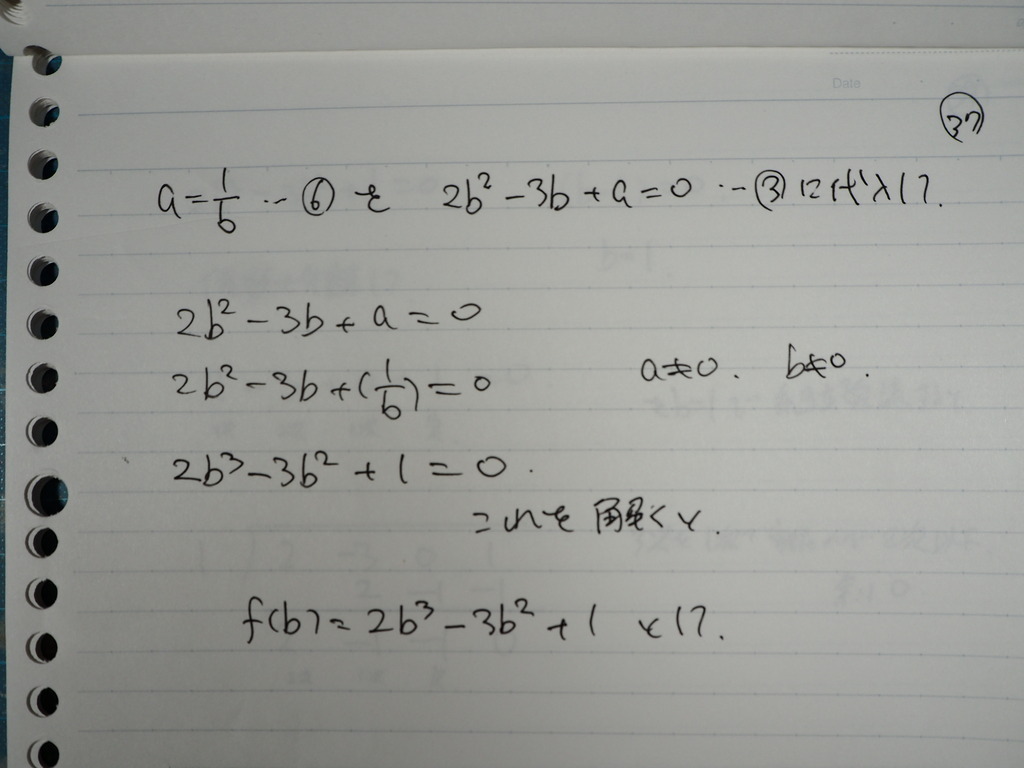 Date
㊲
a = 1/b … ⑥ を 2b² - 3b + a = 0 … ③ に代入して.
2b² - 3b + a = 0
2b² - 3b + (1/b) = 0  a≠0. b≠0.
2b³ - 3b² + 1 = 0.
これを解くと.
f(b) = 2b³ - 3b² + 1 として.